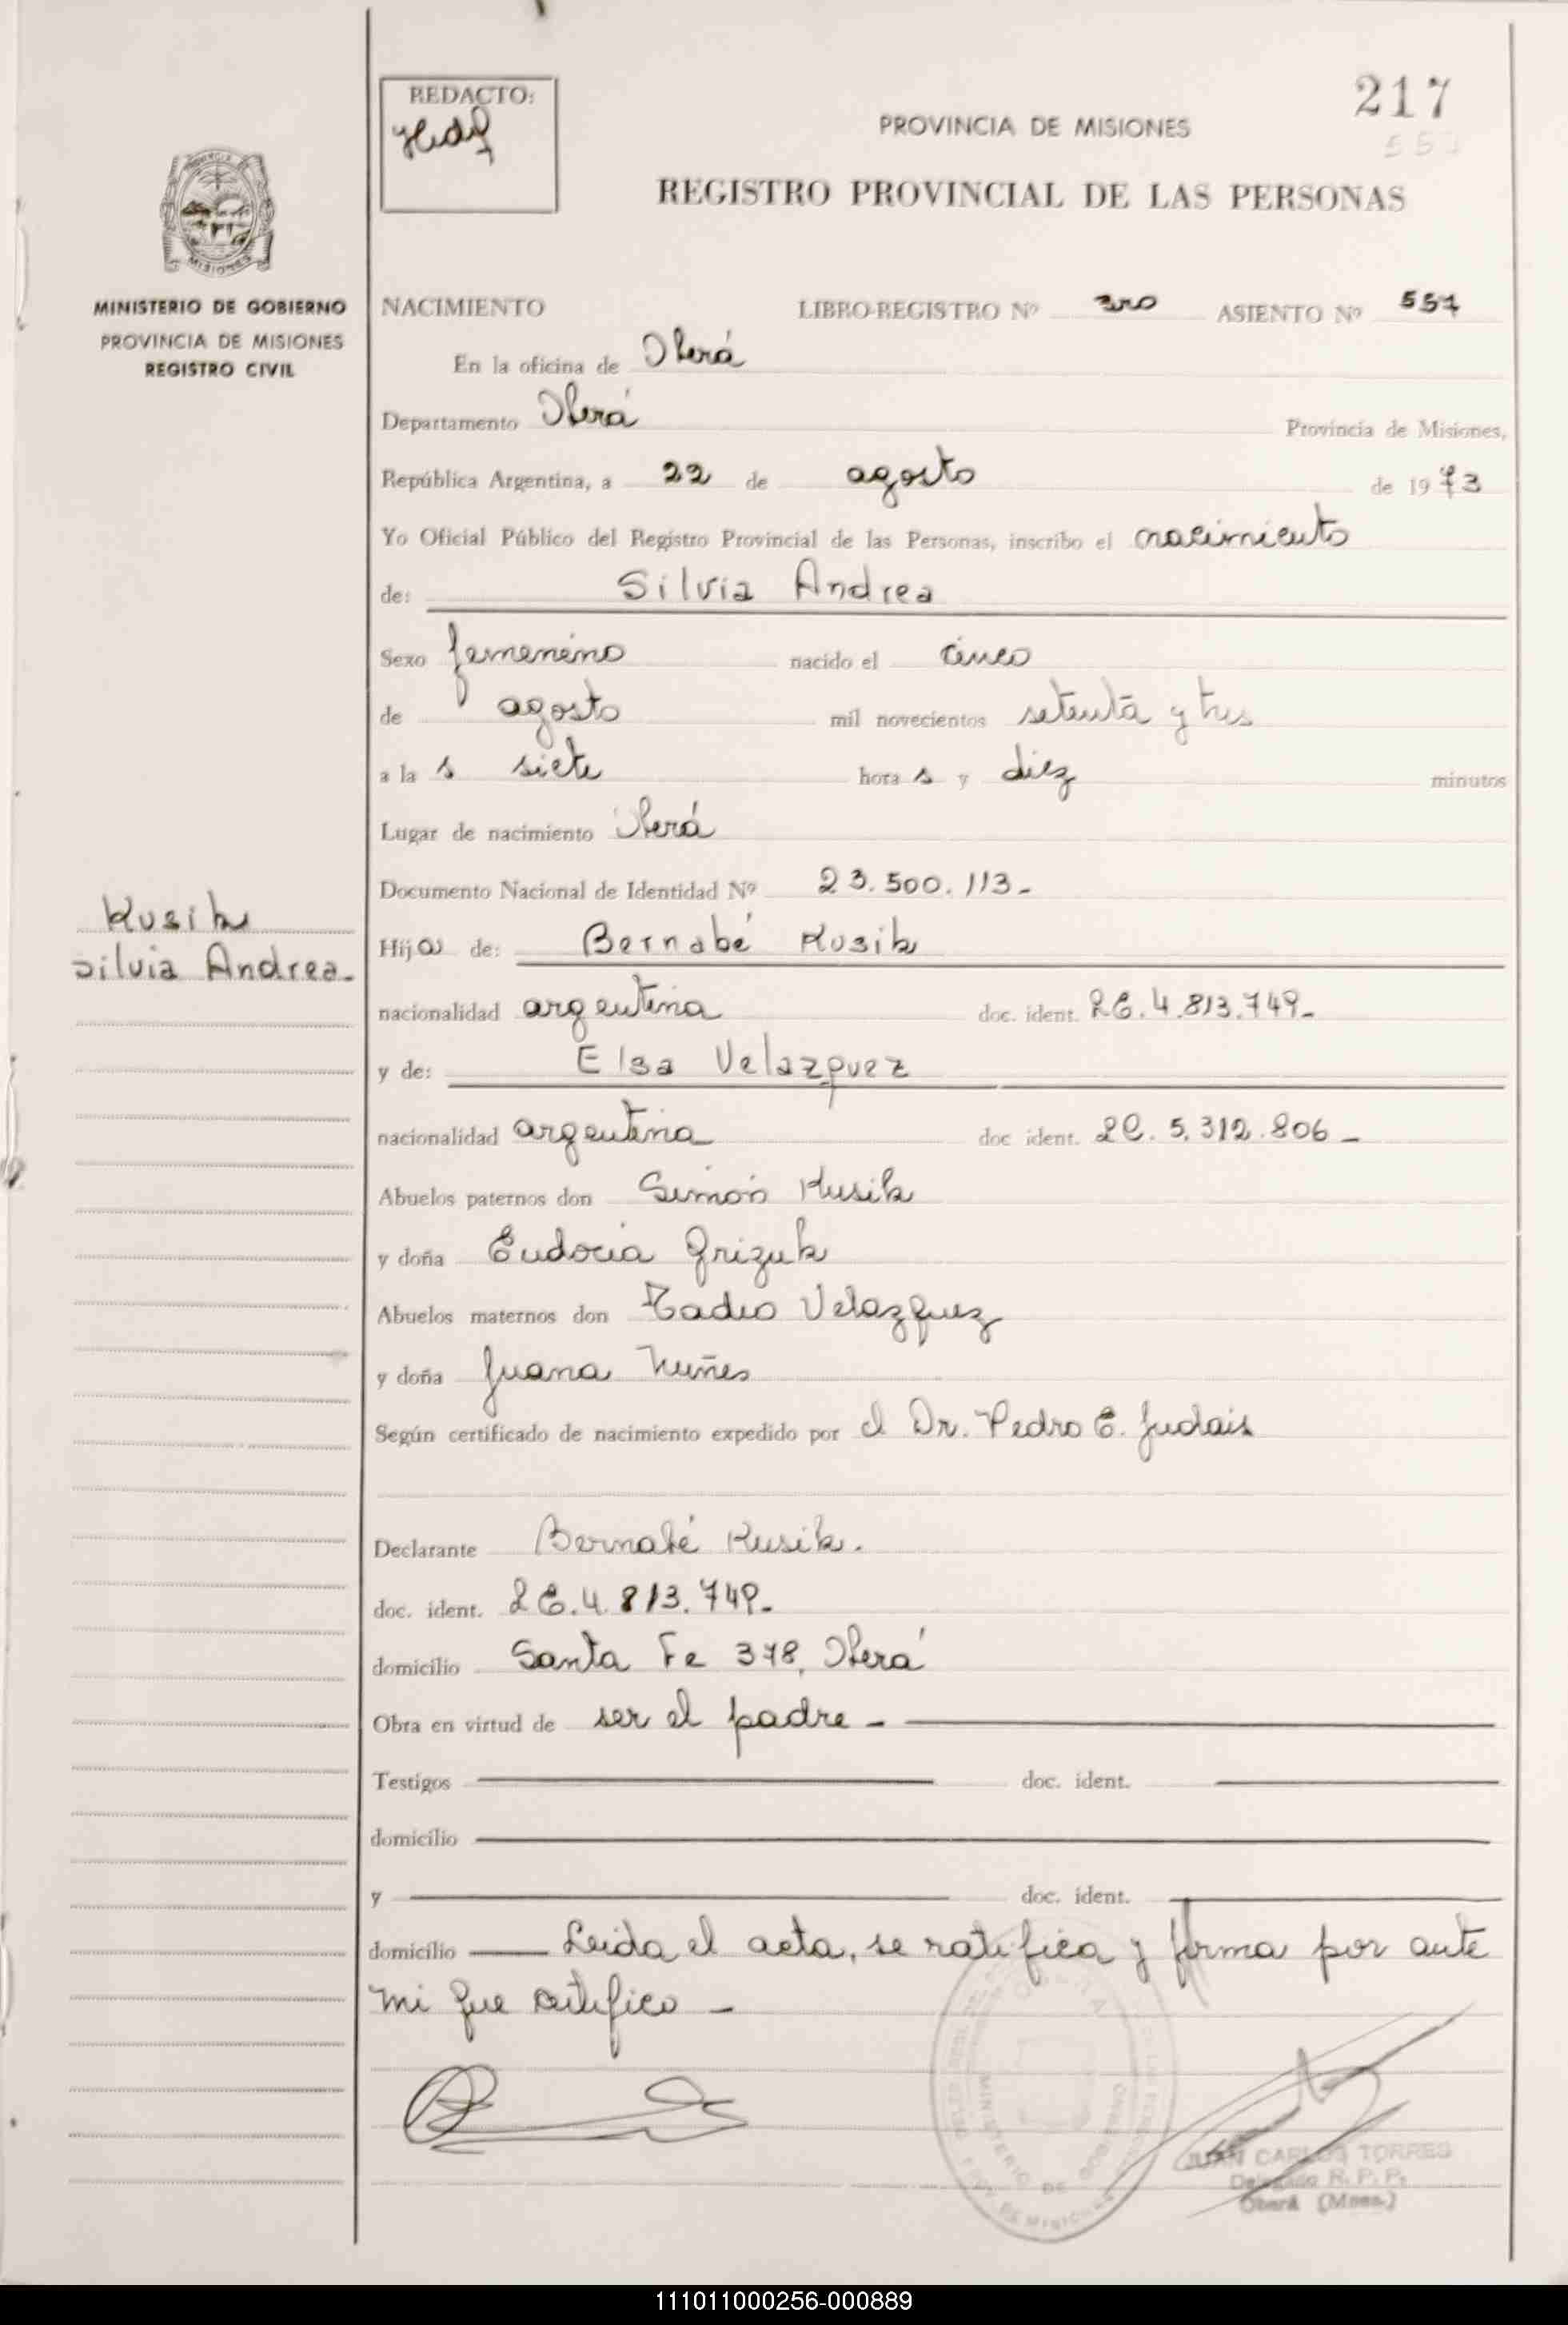 REDACTO:
217
PROVINCIA DE MISIONES
REGISTRO PROVINCIAL DE LAS PERSONAS
MISIONES
MINISTERIO DE GOBIERNO
PROVINCIA DE MISIONES
REGISTRO CIVIL
NACIMIENTO LIBRO-REGISTRO Nº 3ro ASIENTO Nº 557
En la oficina de Oberá
Departamento Oberá Provincia de Misiones,
República Argentina, a 22 de agosto de 1973
Yo Oficial Público del Registro Provincial de las Personas, inscribo el nacimiento
de: Silvia Andrea
Sexo femenino nacido el cinco
de agosto mil novecientos setenta y tres
a la s siete hora s y diez minutos
Lugar de nacimiento Oberá
Documento Nacional de Identidad Nº 23.500.113-
Kusik
Silvia Andrea-
Hija de: Bernabé Kusik
nacionalidad argentina doc. ident. LE.4.813.749-
y de: Elsa Velazquez
nacionalidad argentina doc ident. LC. 5.312.806-
Abuelos paternos don Simón Kusik
y doña Eudocia Grizuk
Abuelos maternos don Tadeo Velazquez
y doña Juana Nuñes
Según certificado de nacimiento expedido por el Dr. Pedro E. Judais
Declarante Bernabé Kusik.
doc. ident. LE.4.813.749-
domicilio Santa Fe 378, Oberá
Obra en virtud de ser el padre -
Testigos doc. ident.
domicilio
y doc. ident.
domicilio Leida el acta, se ratifica y firma por ante
mi que certifico -
MINISTERIO DE GOBIERNO
JUAN CARLOS TORRES
Delegado R. P. P.
Oberá (Mnes.)
111011000256-000889